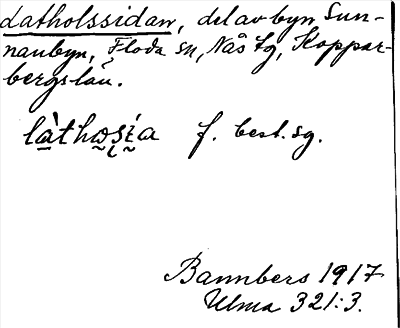 Latholssidan, del av byn Sun-
nanbyn, Floda sn, Nås tg, Koppar-
bergs län.
làthω̣ṣí̭a f. best. sg.
Bannbers 1917
Ulma 321:3.